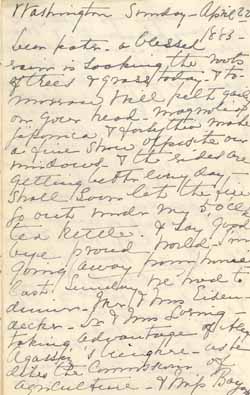 Washington Sunday - April 22
1883 -
Dear Kate. a blessed
rain is soaking the roots
of trees & grass today. & to-
morrow will pelt
on your head - magnolias
japonica & forsythia make
a fine show opposite our
windows & the sides are
getting better every day -
Shall soon let the fire
go out under my 5 oclk
tea kettle. & say Good
bye proud world - I'm
going away from home
last Sunday we had to
dinner - Mr & Mrs
- Dr & Mrs Loring -
taking advantage of Mr
Agassiz's being here - as he
the Commissioner of
Agriculture - & Mrs